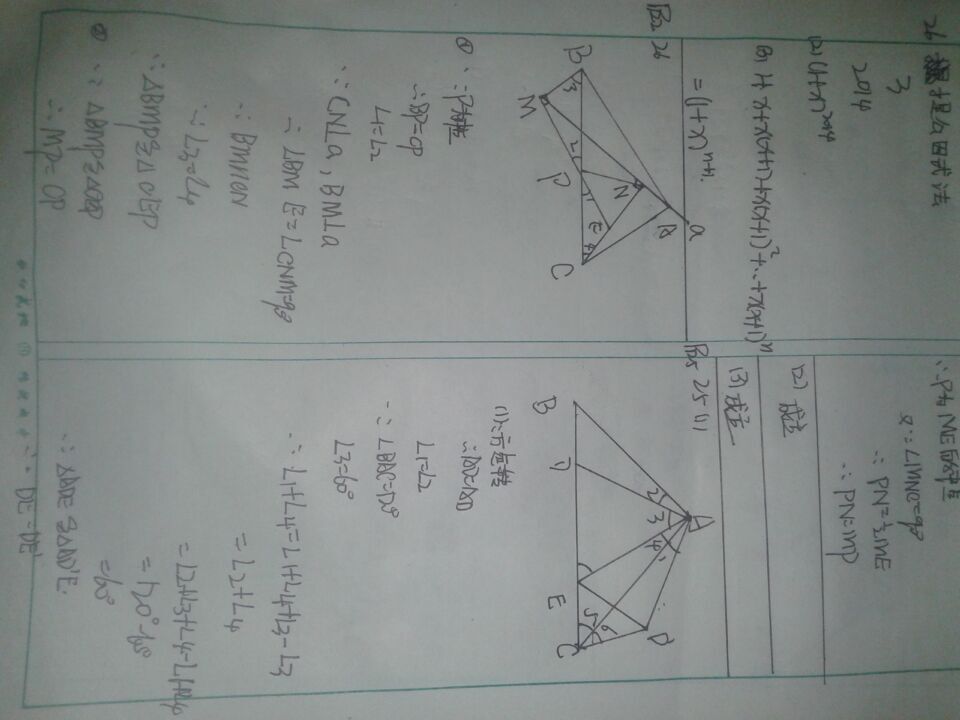 26 提公因式法
3
2014
(2) (1+x)^2014
(3) 1+x+x(x+1)+x(x+1)^2+…+x(x+1)^n
=(1+x)^n+1
P52 26
a
A
B
3
M
2
P
1
N
E
4
C
① ∵P为中点
∴BP=CP
∠1=∠2
∵CN⊥a, BM⊥a
∴∠BM E=∠CNM=90°
∴BM∥CN
∴∠3=∠4
∴△BMP≌△CEP
② ∵△BMP≌△CEP
∴MP=EP
∴P为ME的中点
又∵∠MNC=90°
∴PN=½ME
∴PN=MP
(2) 成立
(3) 成立
P5 25 (1)
B
D
A
2
3
4
1
E
5
6
C
D
(1)∵旋转
∴AD=AD
∠1=∠2
∵∠BAC=120°
∠3=60°
∴∠1+∠4=∠1+∠4+∠3-∠3
=∠2+∠4
=∠2+∠3+∠4-∠1+∠4
=120°-60°
=60°
∴△ADE≌△AD'E
∴DE=DE'